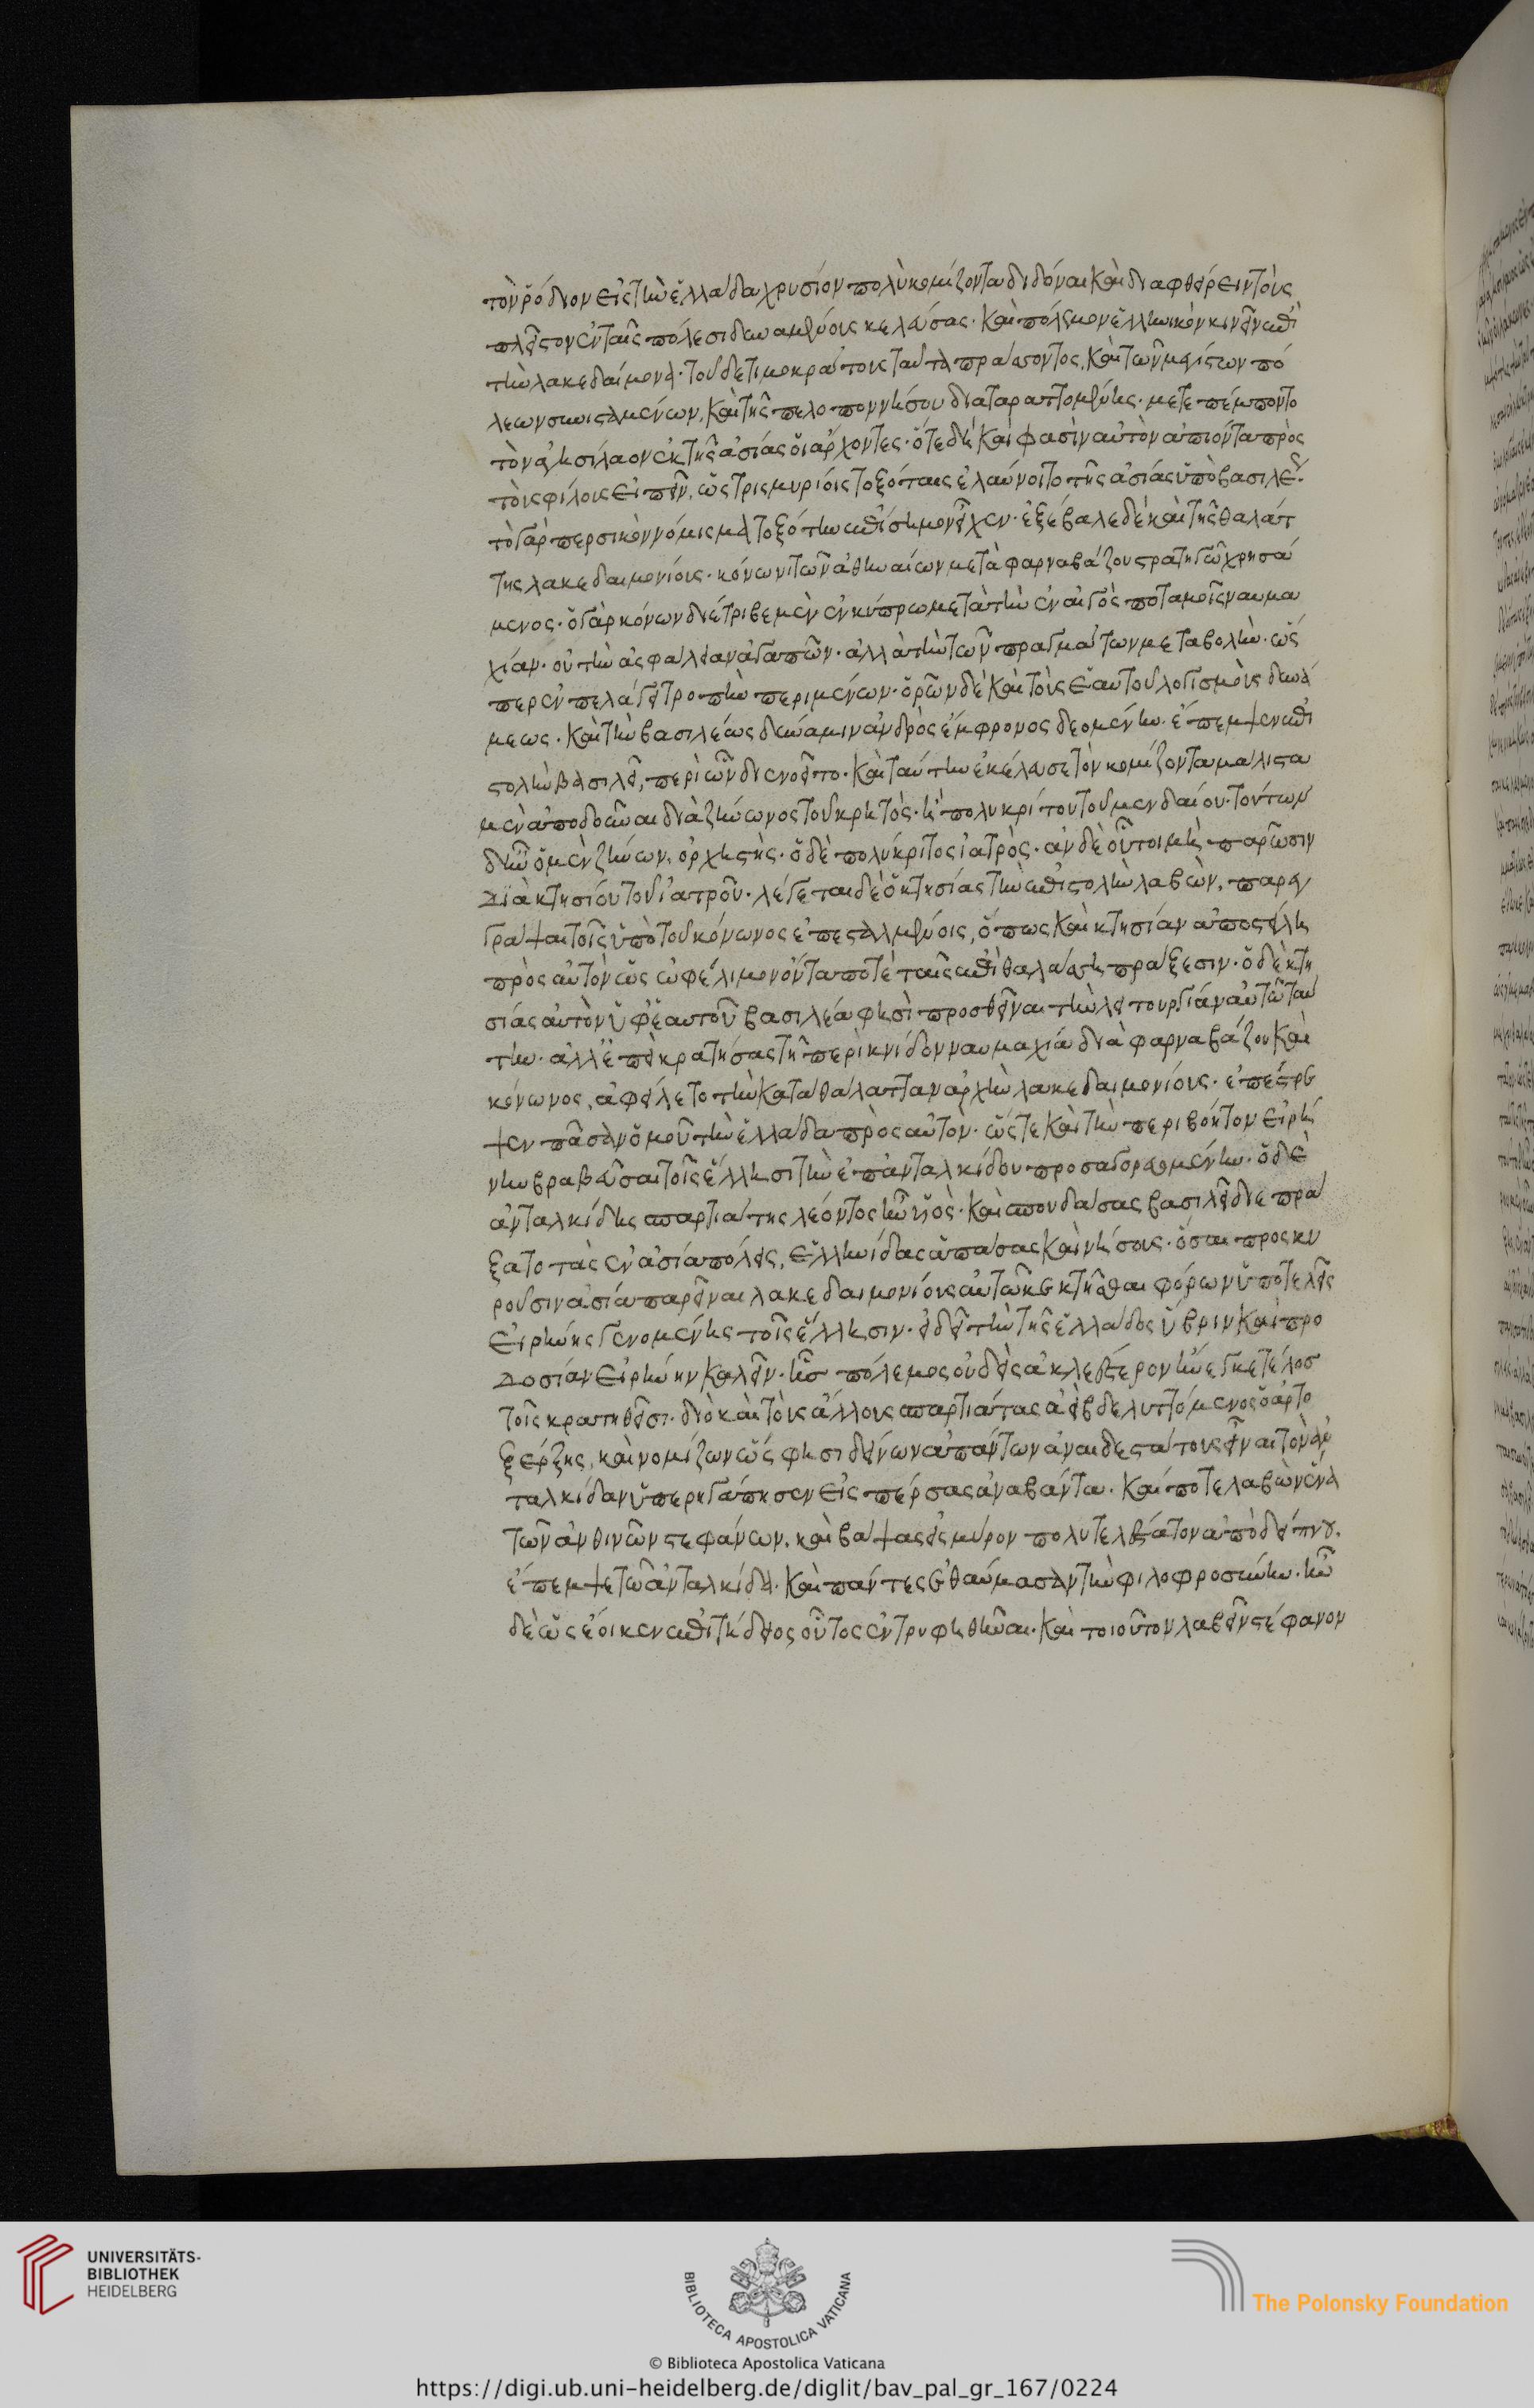 τὸν ῥόδιον εἰς τὴν ἑλλάδα χρυσίον πολὺ κομίζοντα διδόναι καὶ διαφθείρειν τοὺς
πλεῖστον ἐν ταῖς πόλεσι δυναμένοις κελεύσας. καὶ πόλεμον ἑλληνικὸν κινεῖν ἐπὶ
τὴν λακεδαίμονα. τοῦ δὲ τιμοκράτους ταῦτα πράσσοντος, καὶ τῶν μεγίστων πό
λεων συνισταμένων, καὶ τῆς πελοποννήσου διαταραττομένης. μετεπέμποντο
τὸν ἀγησίλαον ἐκ τῆς ἀσίας οἱ ἄρχοντες. ὅτε δὴ καὶ φασὶν αὐτὸν ἀπιόντα πρὸς
τοὺς φίλους εἰπεῖν, ὡς τρισμυρίοις τοξόταις ἐλαύνοιτο τῆς ἀσίας ὑπὸ βασιλέως.
τὸ γὰρ περσικὸν νόμισμα τοξότην ἐπίσημον εἶχεν. ἐξέβαλε δὲ καὶ τῆς θαλάτ
της λακεδαιμονίους. κόνωνι τῶν ἀθηναίων μετὰ φαρναβάζου στρατηγῶ χρησά
μενος. ὁ γὰρ κόνων διέτριβε μὲν ἐν κύπρω μετὰ τὴν ἐν αἰγὸς ποταμοῖς ναυμα
χίαν. οὐ τὴν ἀσφάλειαν ἀγαπῶν. ἀλλὰ τὴν τῶν πραγμάτων μεταβολὴν. ὥς
περ ἐν πελάγει τροπὴν περιμένων. ὁρῶν δὲ καὶ τοὺς ἑαυτοῦ λογισμοὺς δυνά
μεως. καὶ τὴν βασιλέως δύναμιν ἀνδρὸς ἔμφρονος δεομένην. ἔπεμψεν ἐπι
στολὴν βασιλεῖ, περὶ ὧν διενοεῖτο. καὶ ταύτην ἐκέλευσε τὸν κομίζοντα μάλιστα
μὲν ἀποδοῦναι διὰ ζήνωνος τοῦ κρητός. ἢ πολυκρίτου τοῦ μενδαίου. τούτων
δ’ ἦν ὁ μὲν ζήνων, ὀρχηστής. ὁ δὲ πολύκριτος ἰατρός. ἂν δὲ οὗτοι μὴ παρῶσιν
διὰ κτησίου τοῦ ἰατροῦ. λέγεται δὲ ὁ κτησίας τὴν ἐπιστολὴν λαβὼν, παρεγ
γράψαι τοῖς ὑπὸ τοῦ κόνωνος ἐπεσταλμένοις, ὅπως καὶ κτησίαν ἀποστείλη
πρὸς αὐτὸν ὡς ὠφέλιμον ὄντα ποτὲ ταῖς ἐπὶ θαλάσση πράξεσιν. ὁ δὲ κτη
σίας αὐτὸν ὑφ’ ἑαυτοῦ βασιλέα φησὶ προσθεῖναι τὴν λειτουργίαν αὐτῶ ταύ
την. ἀλλ’ ἐπεὶ κρατήσας τῆ περὶ κνίδον ναυμαχία διὰ φαρναβάζου καὶ
κόνωνος, ἀφείλετο τὴν κατὰ θάλατταν ἀρχὴν λακεδαιμονίους. ἐπέστρε
ψεν πᾶσαν ὁμοῦ τὴν ἑλλάδα πρὸς αὐτὸν. ὥστε καὶ τὴν περιβόητον εἰρή
νην βραβεῦσαι τοῖς ἕλλησι τὴν ἐπ’ ἀνταλκίδου προσαγορευομένην. ὁ δὲ
ἀνταλκίδης σπαρτιάτης λέοντος ἦν υἱὸς. καὶ σπουδάσας βασιλεῖ διεπρά
ξατο τὰς ἐν ἀσία πόλεις, ἑλληνίδας ἁπάσας καὶ νήσους. ὅσαι προσκυ
ροῦσιν ἀσία παρεῖναι λακεδαιμονίους αὐτῶ κεκτῆσθαι φόρων ὑποτελεῖς
εἰρήνης γενομένης τοῖς ἕλλησιν. εἰ δεῖ τὴν τῆς ἑλλάδος ὕβριν καὶ προ
δοσίαν εἰρήνην καλεῖν. ἧς πόλεμος οὐδεὶς ἀκλεέστερον ἤνεγκε τέλος
τοῖς κρατηθεῖσι. διὸ καὶ τοὺς ἄλλους σπαρτιάτας ἀεὶ βδελυττόμενος ὁ ἀρτο
ξέρξης, καὶ νομίζων ὥς φησι δείνων ἁπάντων ἀναιδεστάτους εἶναι τὸν ἀν
ταλκίδαν ὑπερηγάπησεν εἰς πέρσας ἀναβάντα. καί ποτε λαβὼν ἕνα
τῶν ἀνθινῶν στεφάνων, καὶ βάψας εἰς μύρον πολυτελέστατον ἀπὸ δείπνου,
ἔπεμψε τῶ ἀνταλκίδα. καὶ πάντες ἐθαύμασαν τὴν φιλοφροσύνην. ἦν
δὲ ὡς ἔοικεν ἐπιτήδειος οὗτος ἐντρυφηθῆναι. καὶ τοιοῦτον λαβεῖν στέφανον
UNIVERSITÄTS-
BIBLIOTHEK
HEIDELBERG
BIBLIOTECA APOSTOLICA VATICANA
The Polonsky Foundation
© Biblioteca Apostolica Vaticana
https://digi.ub.uni-heidelberg.de/diglit/bav_pal_gr_167/0224